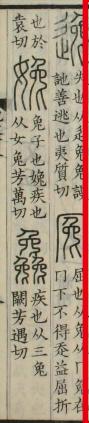 逸 失也从辵兔兔謾訑善逃也夷質切 冤 屈也从兔从冖兔在冖下不得走益屈折
也於袁切 娩 兔子也娩疾也从女兔芳萬切 疾也从三兔闕芳遇切